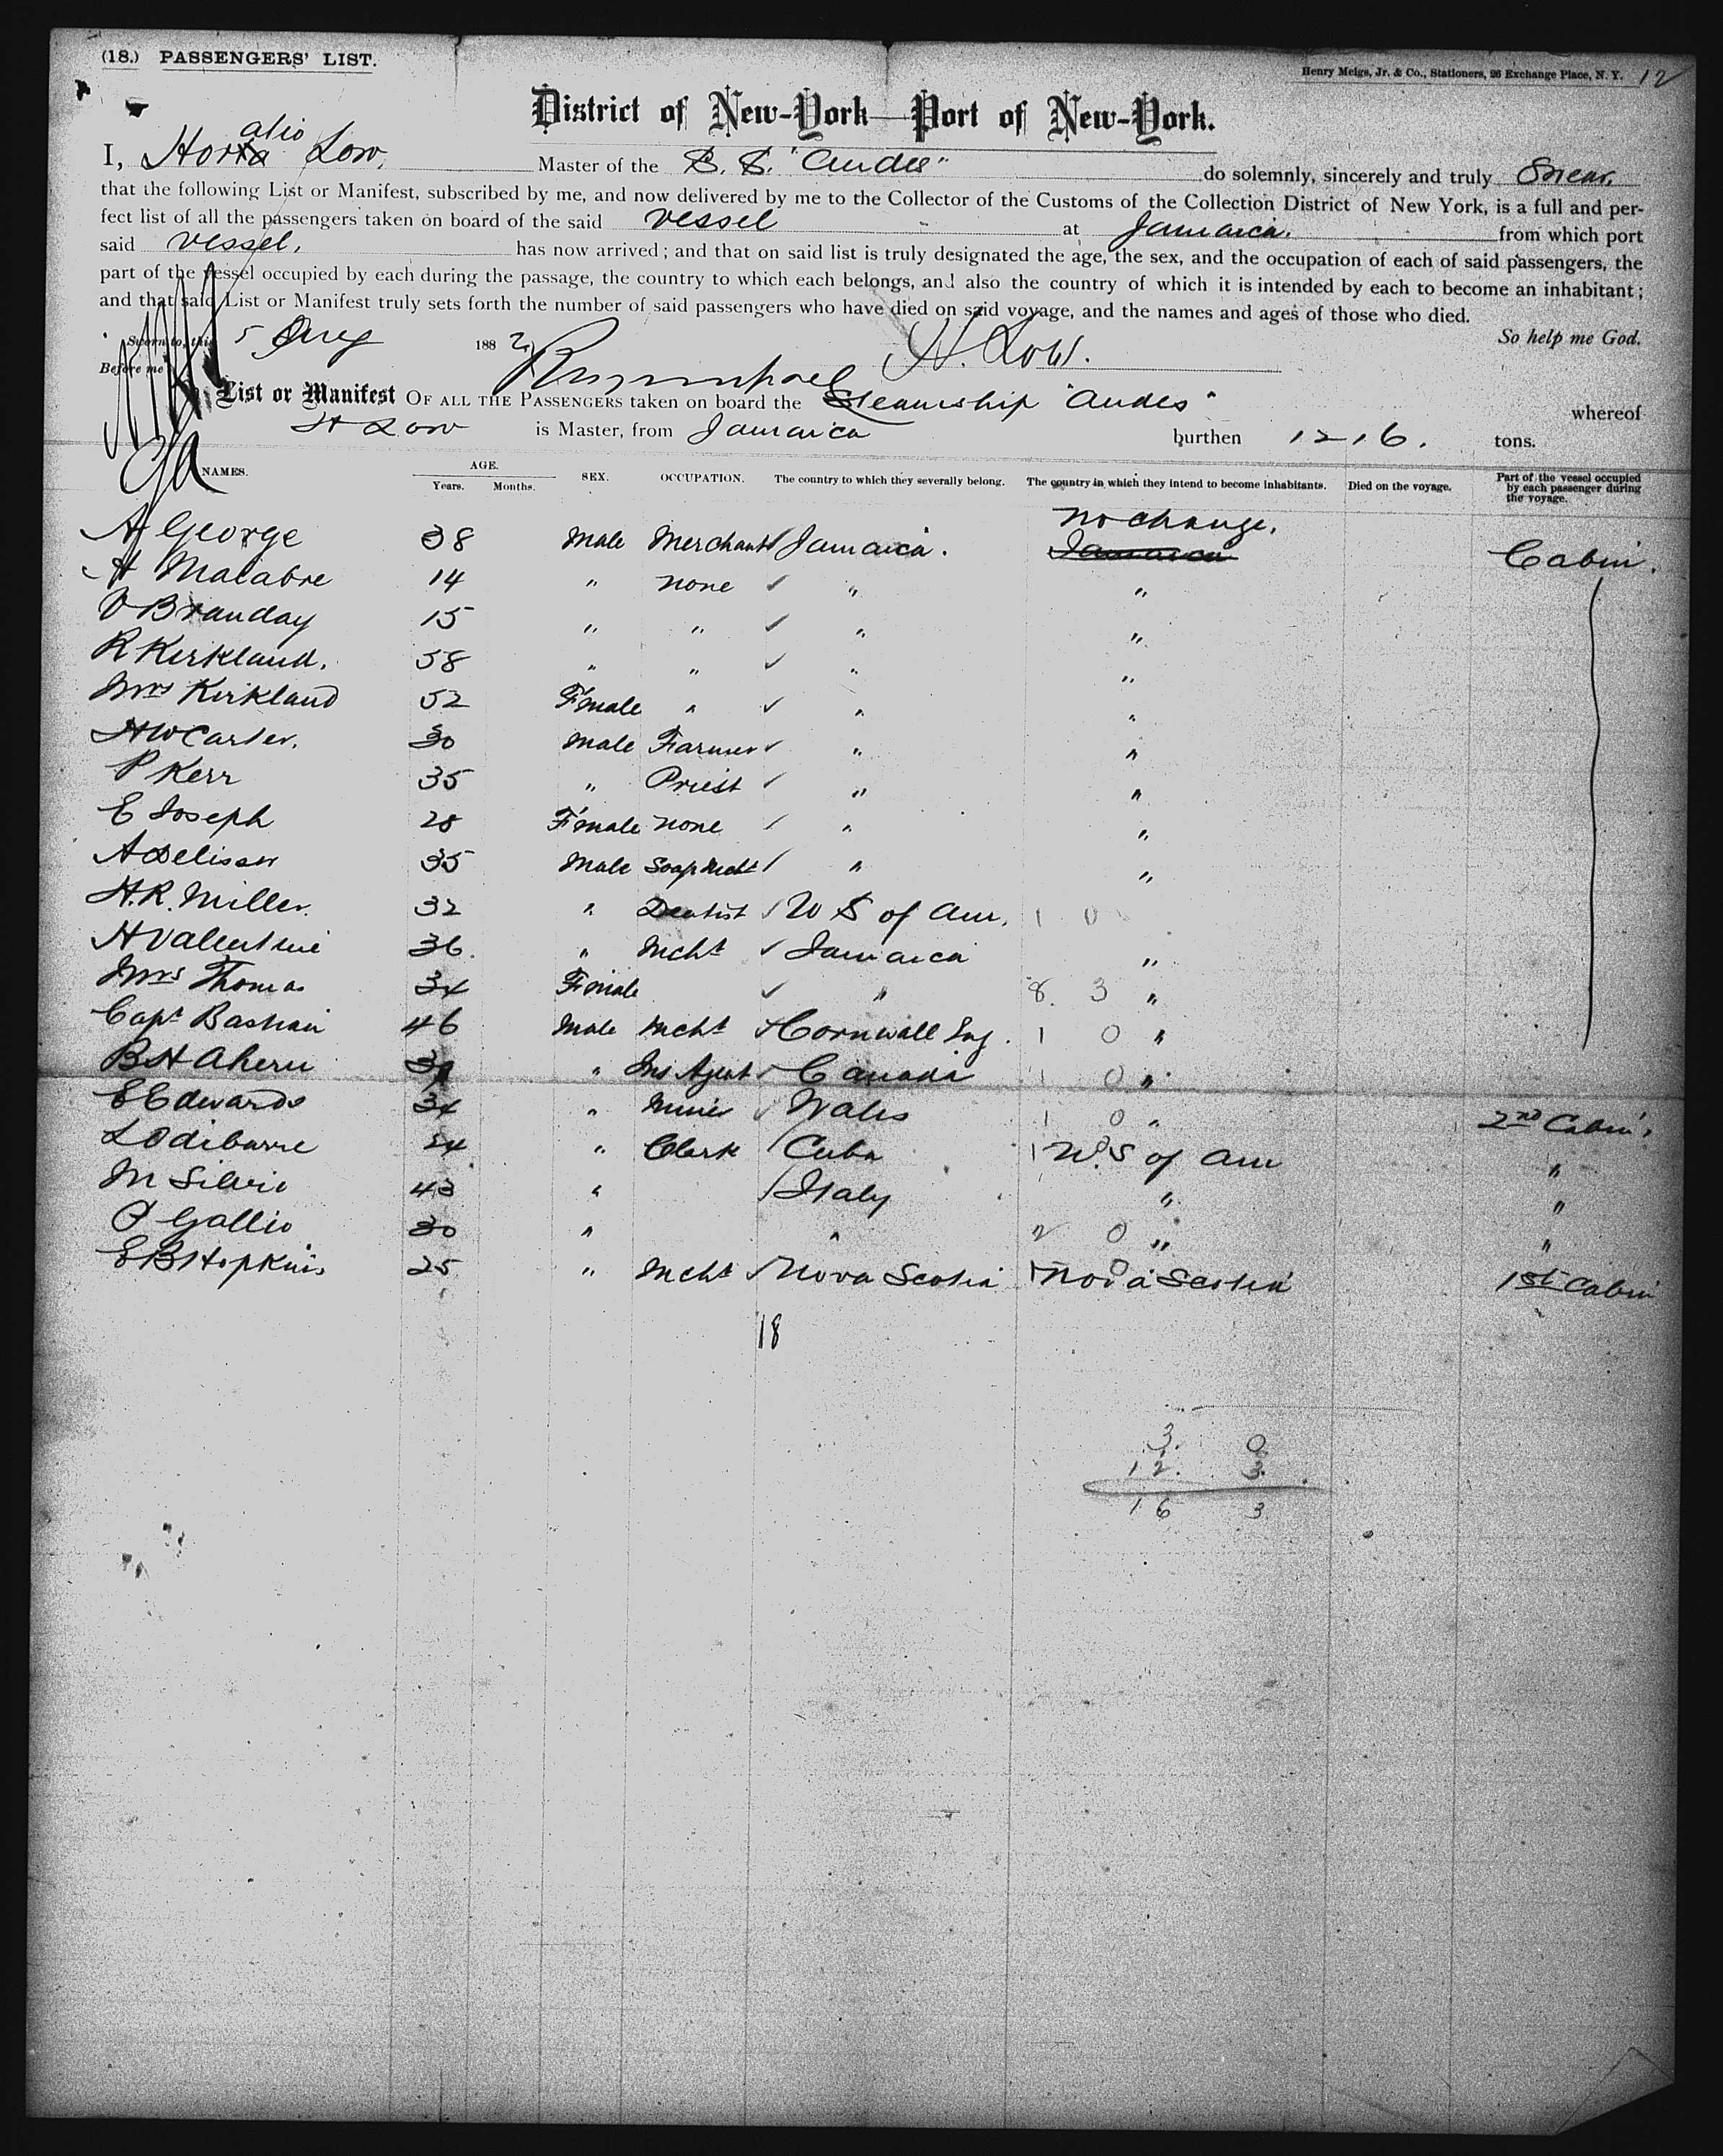 (18.) PASSENGERS' LIST.
Henry Meigs, Jr. & Co., Stationers, 26 Exchange Place, N. Y. 12
District of New-York—Port of New-York.
I, Horatio Low, Master of the S. S. "Andes" do solemnly, sincerely and truly Swear,
that the following List or Manifest, subscribed by me, and now delivered by me to the Collector of the Customs of the Collection District of New York, is a full and per-
fect list of all the passengers taken on board of the said vessel at Jamaica. from which port
said vessel, has now arrived; and that on said list is truly designated the age, the sex, and the occupation of each of said passengers, the
part of the vessel occupied by each during the passage, the country to which each belongs, and also the country of which it is intended by each to become an inhabitant;
and that said List or Manifest truly sets forth the number of said passengers who have died on said voyage, and the names and ages of those who died.
So help me God.
Sworn to, this 5 Aug 1882 H. Low.
Before me
List or Manifest OF ALL THE PASSENGERS taken on board the Steamship "Andes" whereof
H Low is Master, from Jamaica burthen 1216. tons.
NAMES. AGE. Years. Months. SEX. OCCUPATION. The country to which they severally belong. The country in which they intend to become inhabitants. Died on the voyage. Part of the vessel occupied by each passenger during the voyage.
no change.
A George 38 Male Merchant Jamaica. Jamaica Cabin.
A Malabre 14 " none " "
V Branday 15 " " " "
R Kirkland. 58 " " " "
Mrs Kirkland 52 Female " " "
HW Carter. 30 Male Farmer " "
P Kerr 35 " Priest " "
E Joseph 28 Female none " "
A Delisser 35 Male Soap Mcht " "
H.R. Miller. 32 " Dentist U S of Am. 1 0
H Valentine 36. " Mcht Jamaica "
Mrs Thomas 34 Female " 8. 3 "
Capt Bastian 46 Male Mcht Cornwall Eng. 1 0 "
B H Ahern " Ins Agent Canada 1 0 "
E Edwards 34 " Miner Wales 1 0 " 2nd Cabin.
L Odibarre 24 " Clerk Cuba 1 U.S of Am "
M Silvio 43 " Italy " "
P Gallio 30 " " 2 0 " "
E B Hopkins 25 " Mcht Nova Scotia 1 Nova Scotia 1st Cabin
18
3. 0
12. 3.
16 3